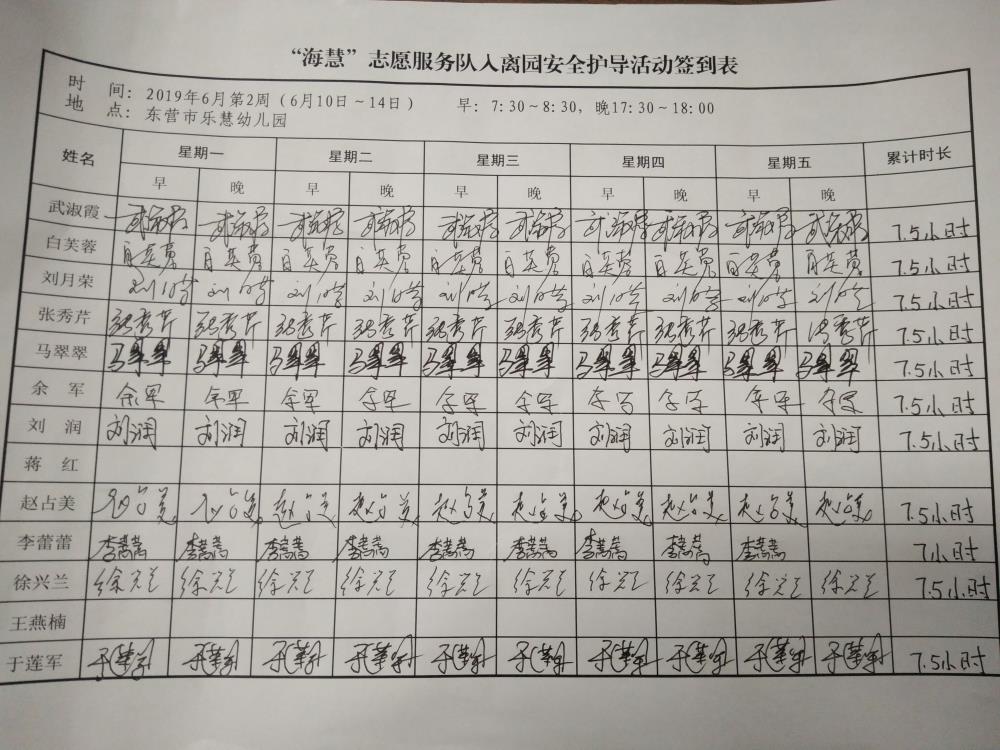 “海慧”志愿服务队入离园安全护导活动签到表
时 间：2019年6月第2周（6月10日～14日） 早：7:30～8:30，晚17:30～18:00
地 点：东营市乐慧幼儿园
姓名 星期一 星期二 星期三 星期四 星期五 累计时长
早 晚 早 晚 早 晚 早 晚 早 晚
武淑霞 武淑霞 武淑霞 武淑霞 武淑霞 武淑霞 武淑霞 武淑霞 武淑霞 武淑霞 武淑霞 7.5小时
白芙蓉 白芙蓉 白芙蓉 白芙蓉 白芙蓉 白芙蓉 白芙蓉 白芙蓉 白芙蓉 白芙蓉 白芙蓉 7.5小时
刘月荣 刘月荣 刘月荣 刘月荣 刘月荣 刘月荣 刘月荣 刘月荣 刘月荣 刘月荣 刘月荣 7.5小时
张秀芹 张秀芹 张秀芹 张秀芹 张秀芹 张秀芹 张秀芹 张秀芹 张秀芹 张秀芹 张秀芹 7.5小时
马翠翠 马翠翠 马翠翠 马翠翠 马翠翠 马翠翠 马翠翠 马翠翠 马翠翠 马翠翠 马翠翠 7.5小时
余 军 余军 余军 余军 余军 余军 余军 余军 余军 余军 余军 7.5小时
刘 润 刘润 刘润 刘润 刘润 刘润 刘润 刘润 刘润 刘润 刘润 7.5小时
蒋 红
赵占美 赵占美 赵占美 赵占美 赵占美 赵占美 赵占美 赵占美 赵占美 赵占美 赵占美 7.5小时
李蕾蕾 李蕾蕾 李蕾蕾 李蕾蕾 李蕾蕾 李蕾蕾 李蕾蕾 李蕾蕾 李蕾蕾 李蕾蕾 7小时
徐兴兰 徐兴兰 徐兴兰 徐兴兰 徐兴兰 徐兴兰 徐兴兰 徐兴兰 徐兴兰 徐兴兰 徐兴兰 7.5小时
王燕楠
于莲军 于莲军 于莲军 于莲军 于莲军 于莲军 于莲军 于莲军 于莲军 于莲军 于莲军 7.5小时